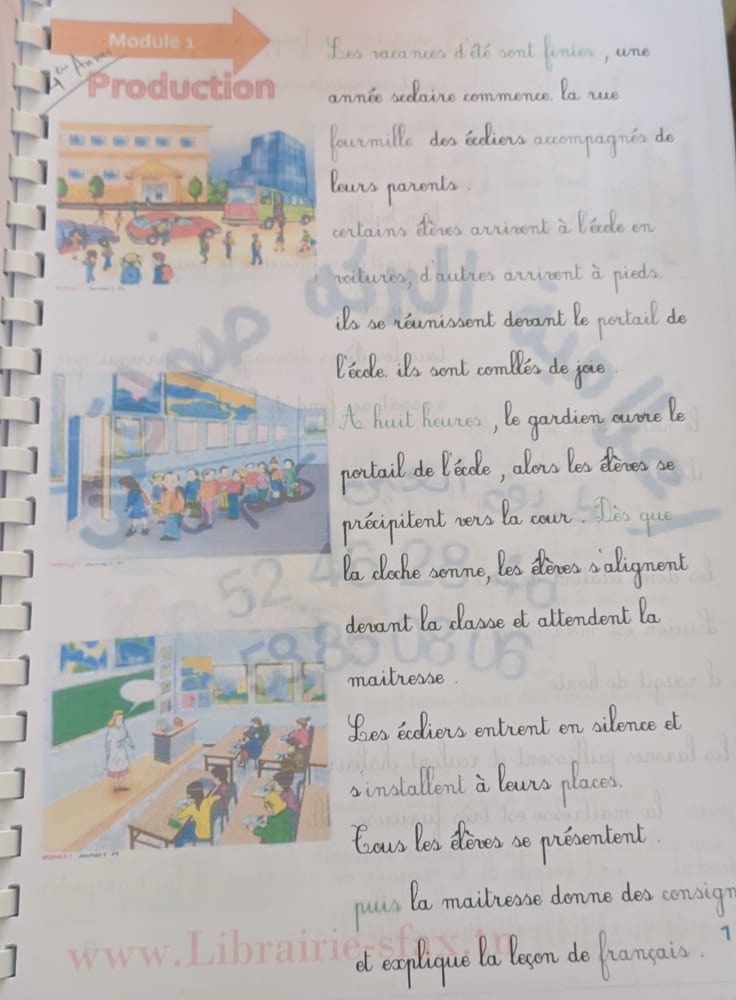 Module 1
Production
Les vacances d'été sont finies, une
année scolaire commence. la rue
fourmille des écoliers accompagnés de
leurs parents.
certains élèves arrivent à l'école en
voitures, d'autres arrivent à pieds.
ils se réunissent devant le portail de
l'école. ils sont comllés de joie.
A huit heures, le gardien ouvre le
portail de l'école, alors les élèves se
précipitent vers la cour. Dès que
la cloche sonne, les élèves s'alignent
devant la classe et attendent la
maitresse.
Les écoliers entrent en silence et
s'installent à leurs places.
Tous les élèves se présentent.
puis la maitresse donne des consign
et explique la leçon de français.
1
52 46 28 46
58 85 08 06
www.Librairie-sfax.tn